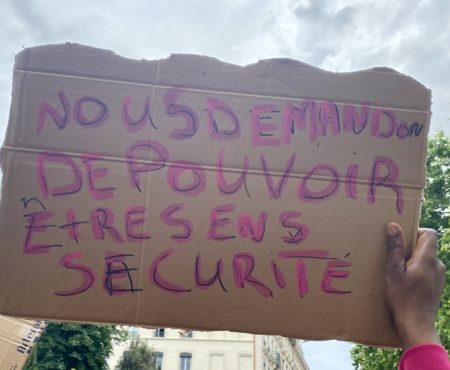 NOUS DEMANDON
DE POUVOIR
ÊTRES ENS
SÉCURITÉ